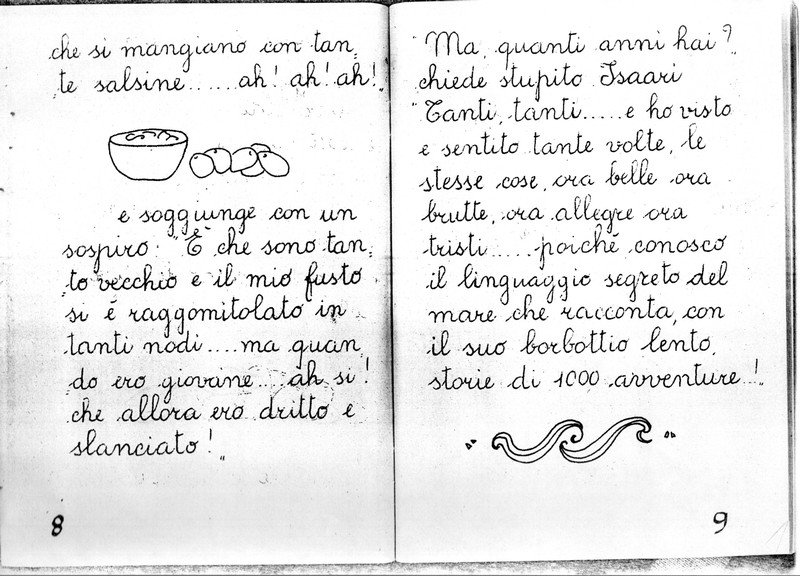 che si mangiano con tan=
te salsine......ah! ah! ah!„
e soggiunge con un
sospiro: "È che sono tan=
to vecchio e il mio fusto
si è raggomitolato in
tanti nodi....ma quan
do ero giovane....ah si!
che allora ero dritto e
slanciato!„
8
"Ma, quanti anni hai?„
chiede stupito Isaari
"Tanti, tanti.....e ho visto
e sentito tante volte, le
stesse cose, ora belle ora
brutte, ora allegre ora
tristi.....poichè conosco
il linguaggio segreto del
mare che racconta, con
il suo borbottio lento,
storie di 1000 avventure..!„
9